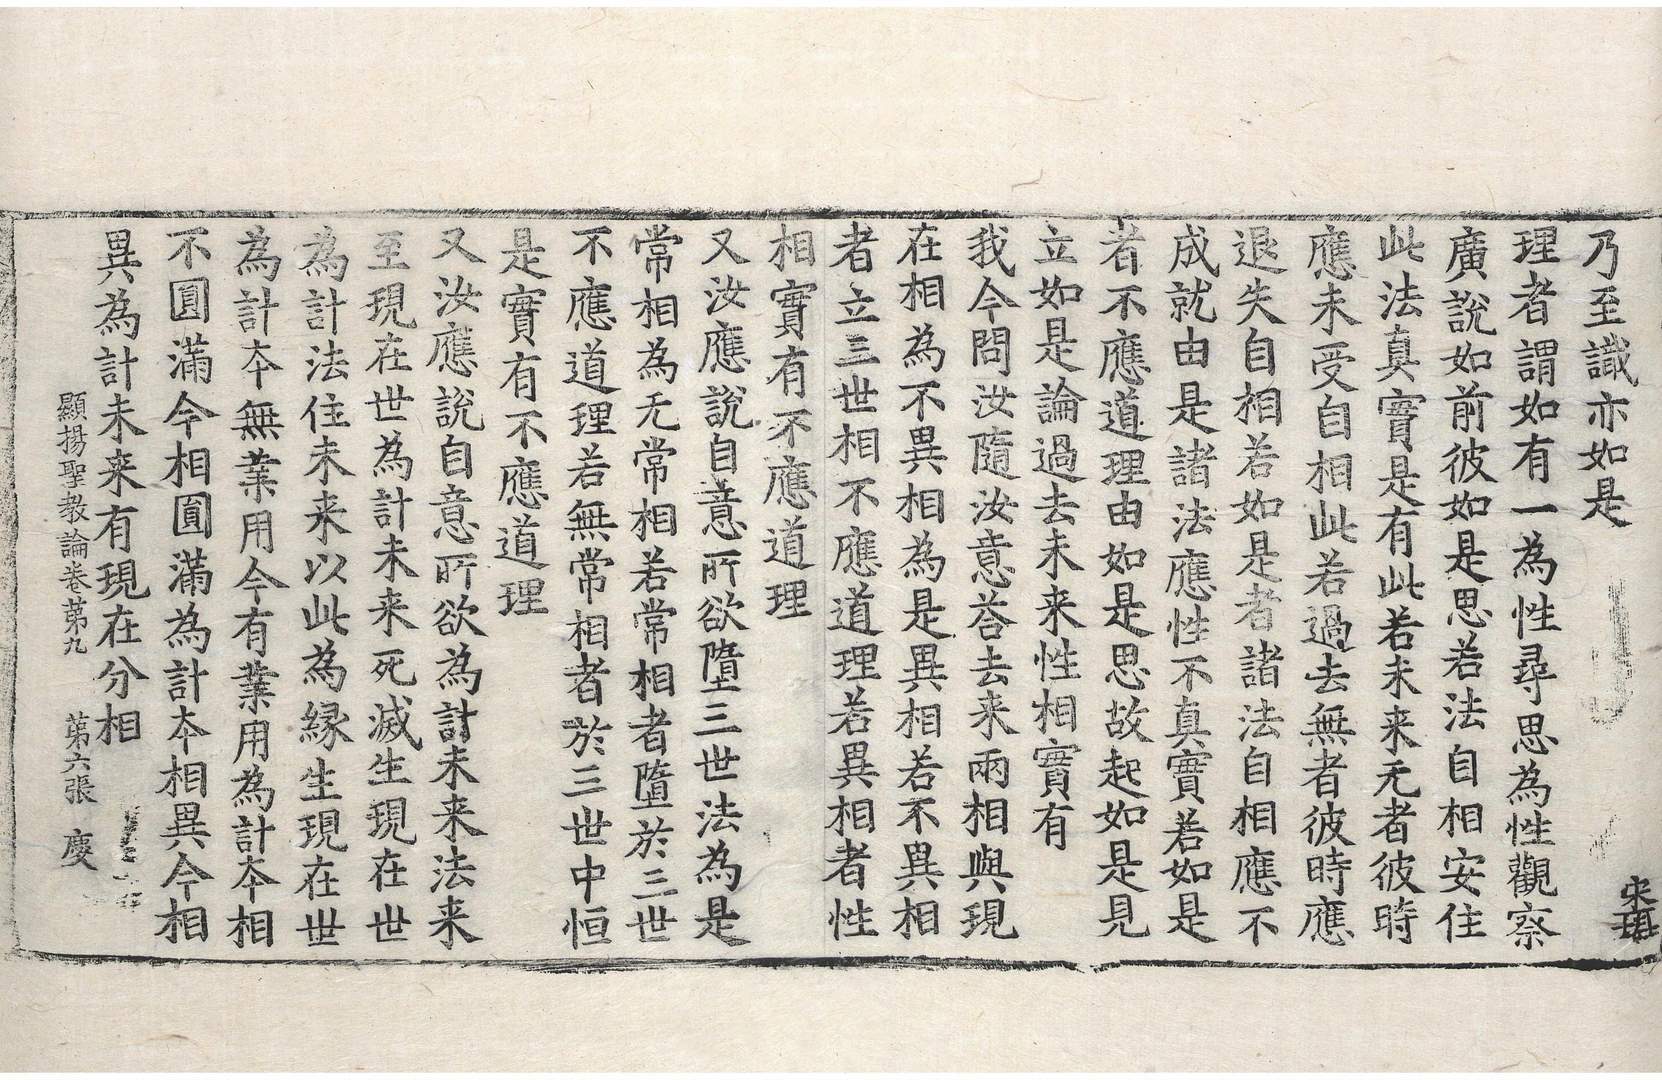 乃至識亦如是
理者謂如有一為性尋思為性觀察
廣說如前彼如是思若法自相安住
此法真實是有此若未来无者彼時
應未受自相此若過去無者彼時應
退失自相若如是者諸法自相應不
成就由是諸法應性不真實若如是
者不應道理由如是思故起如是見
立如是論過去未来性相實有
我今問汝隨汝意荅去来兩相與現
在相為不異相為是異相若不異相
者立三世相不應道理若異相者性
相實有不應道理
又汝應說自意所欲墮三世法為是
常相為无常相若常相者墮於三世
不應道理若無常相者於三世中恒
是實有不應道理
又汝應說自意所欲為計未来法来
至現在世為計未来死滅生現在世
為計法住未来以此為緣生現在世
為計本無業用今有業用為計本相
不圓滿今相圓滿為計本相異今相
異為計未来有現在分相
顯揚聖教論卷苐九 苐六張 慶
宋琪